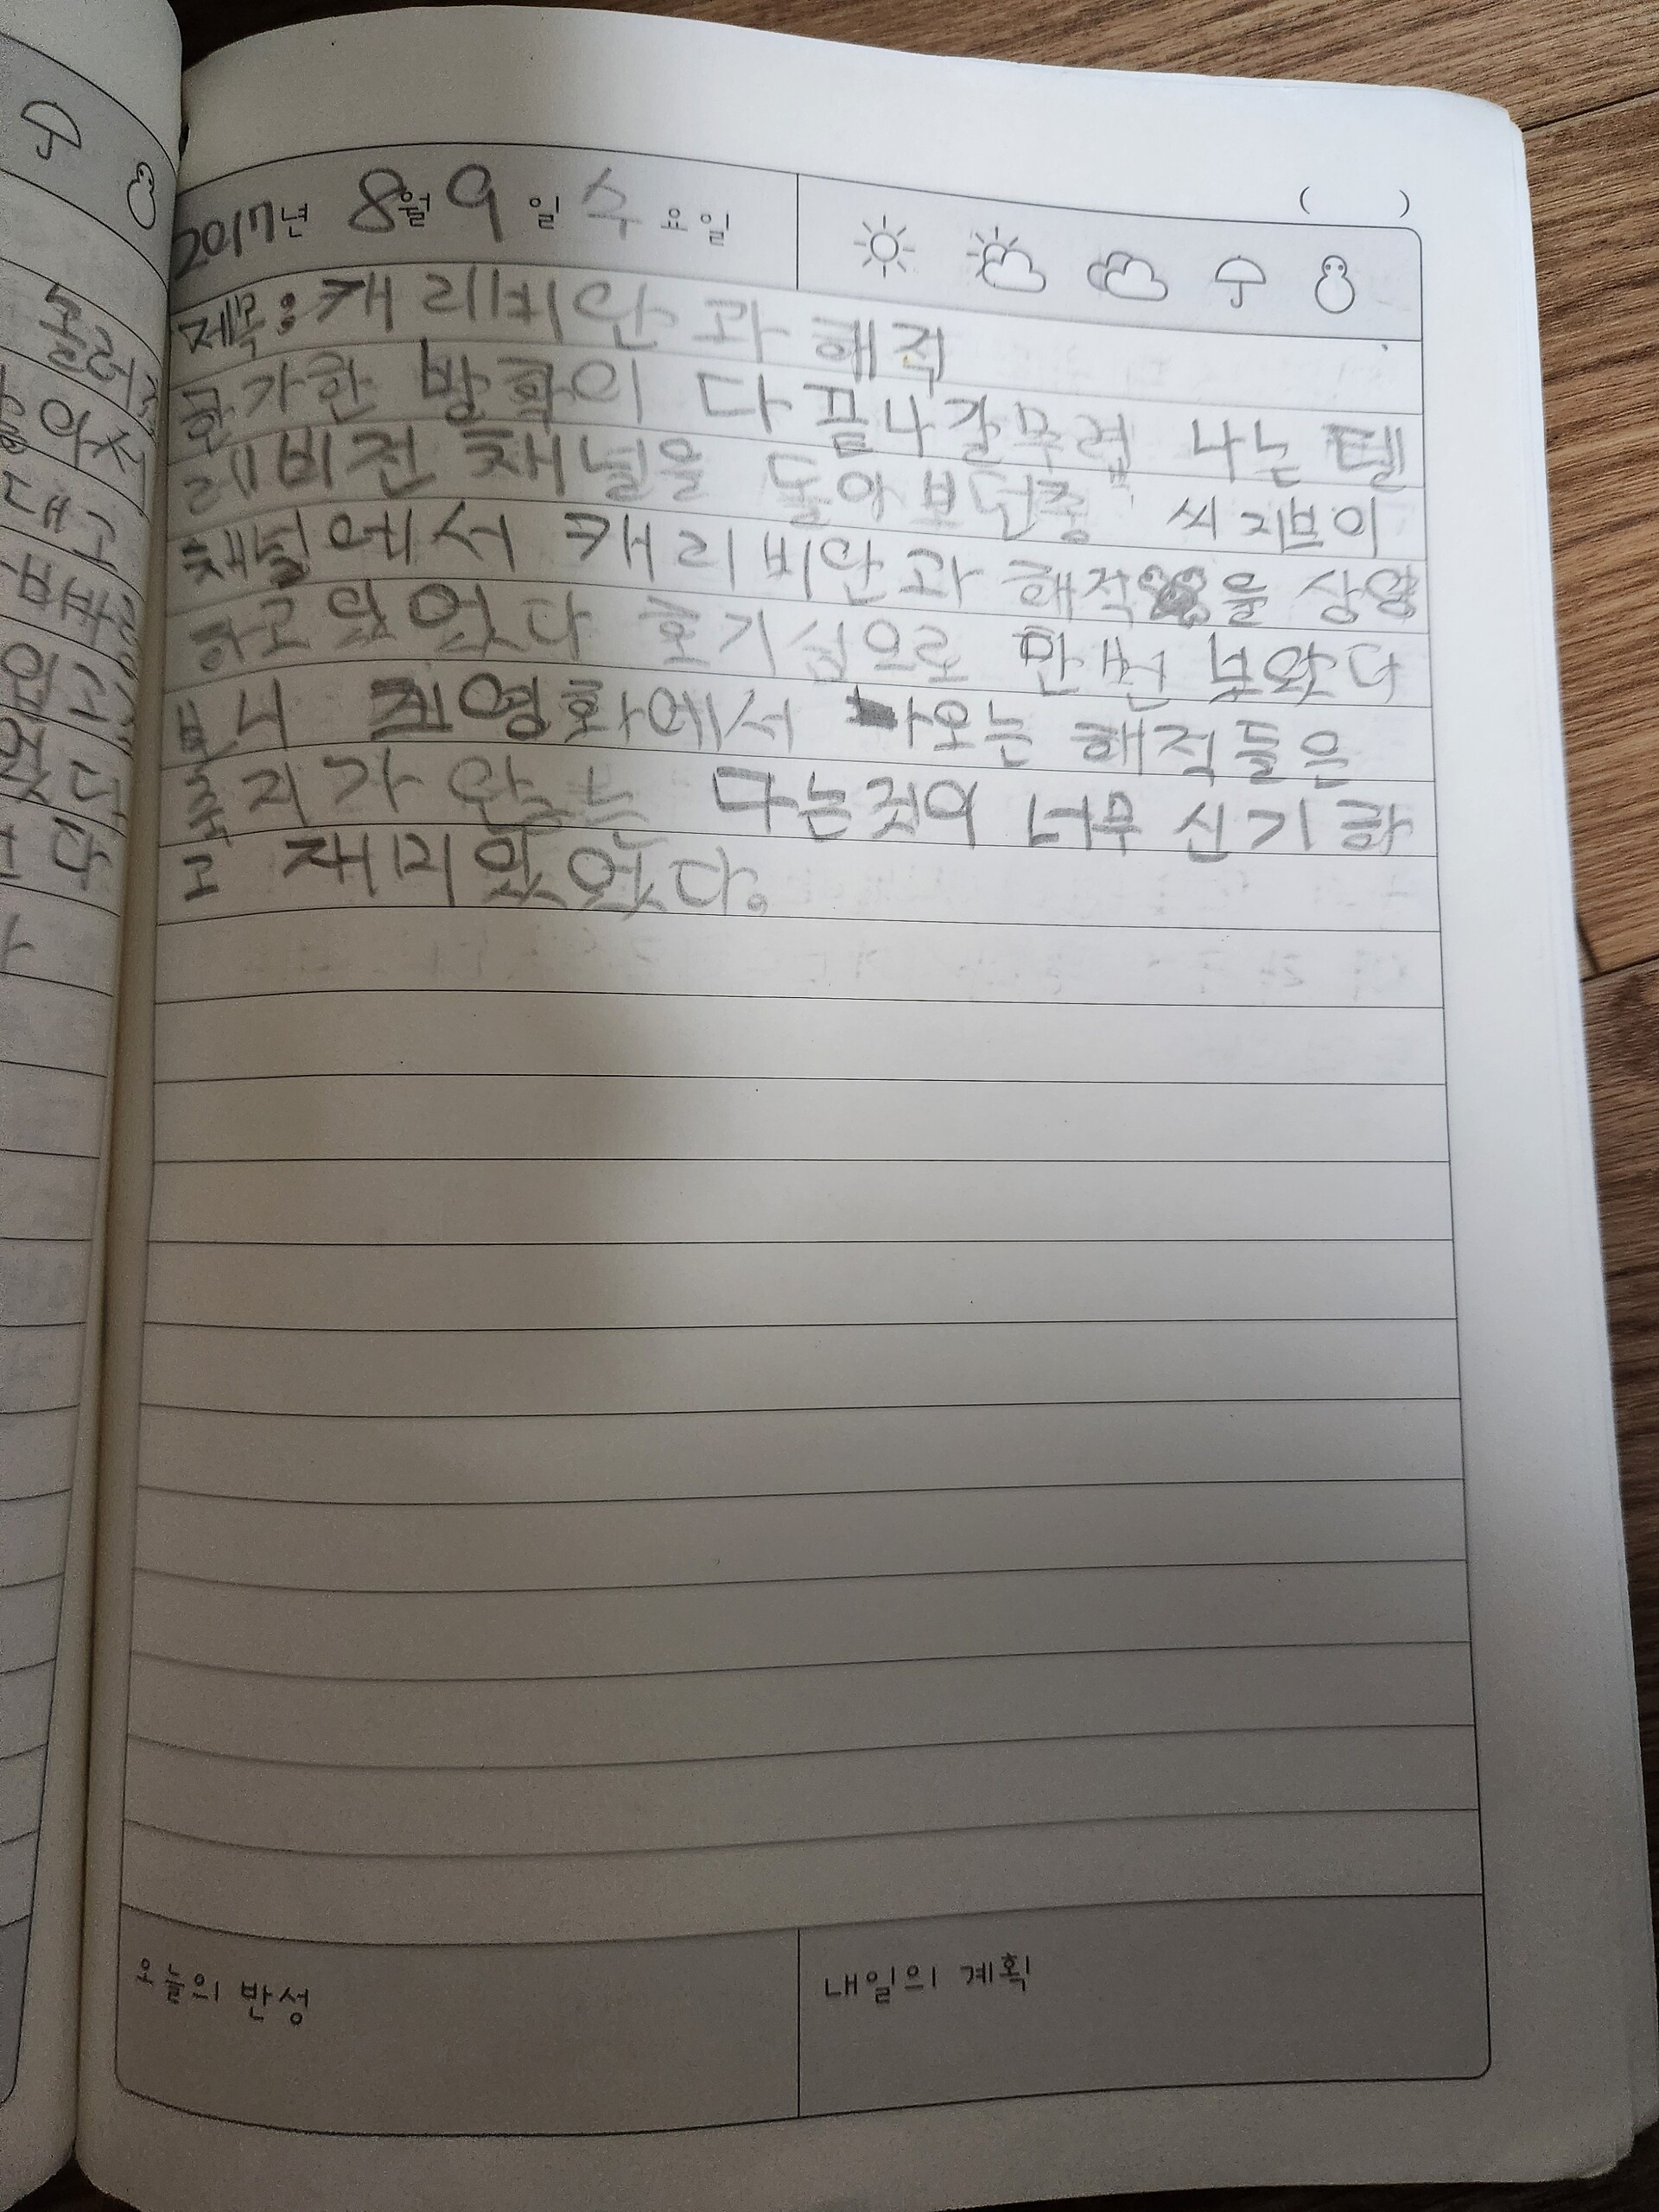 2017년 8월 9일 수요일
( )
제목: 캐리비안과 해적
한가한 방학이 다 끝나갈무렵 나는 텔
레비전 채널을 돌아보던중 씨지브이
채널에서 캐리비안과 해적을 상영
하고 있었다 호기심으로 한번 보았다
보니 영화에서 나오는 해적들은
죽지가 안는 다는것이 너무 신기하
고 재미있었다.
오늘의 반성
내일의 계획